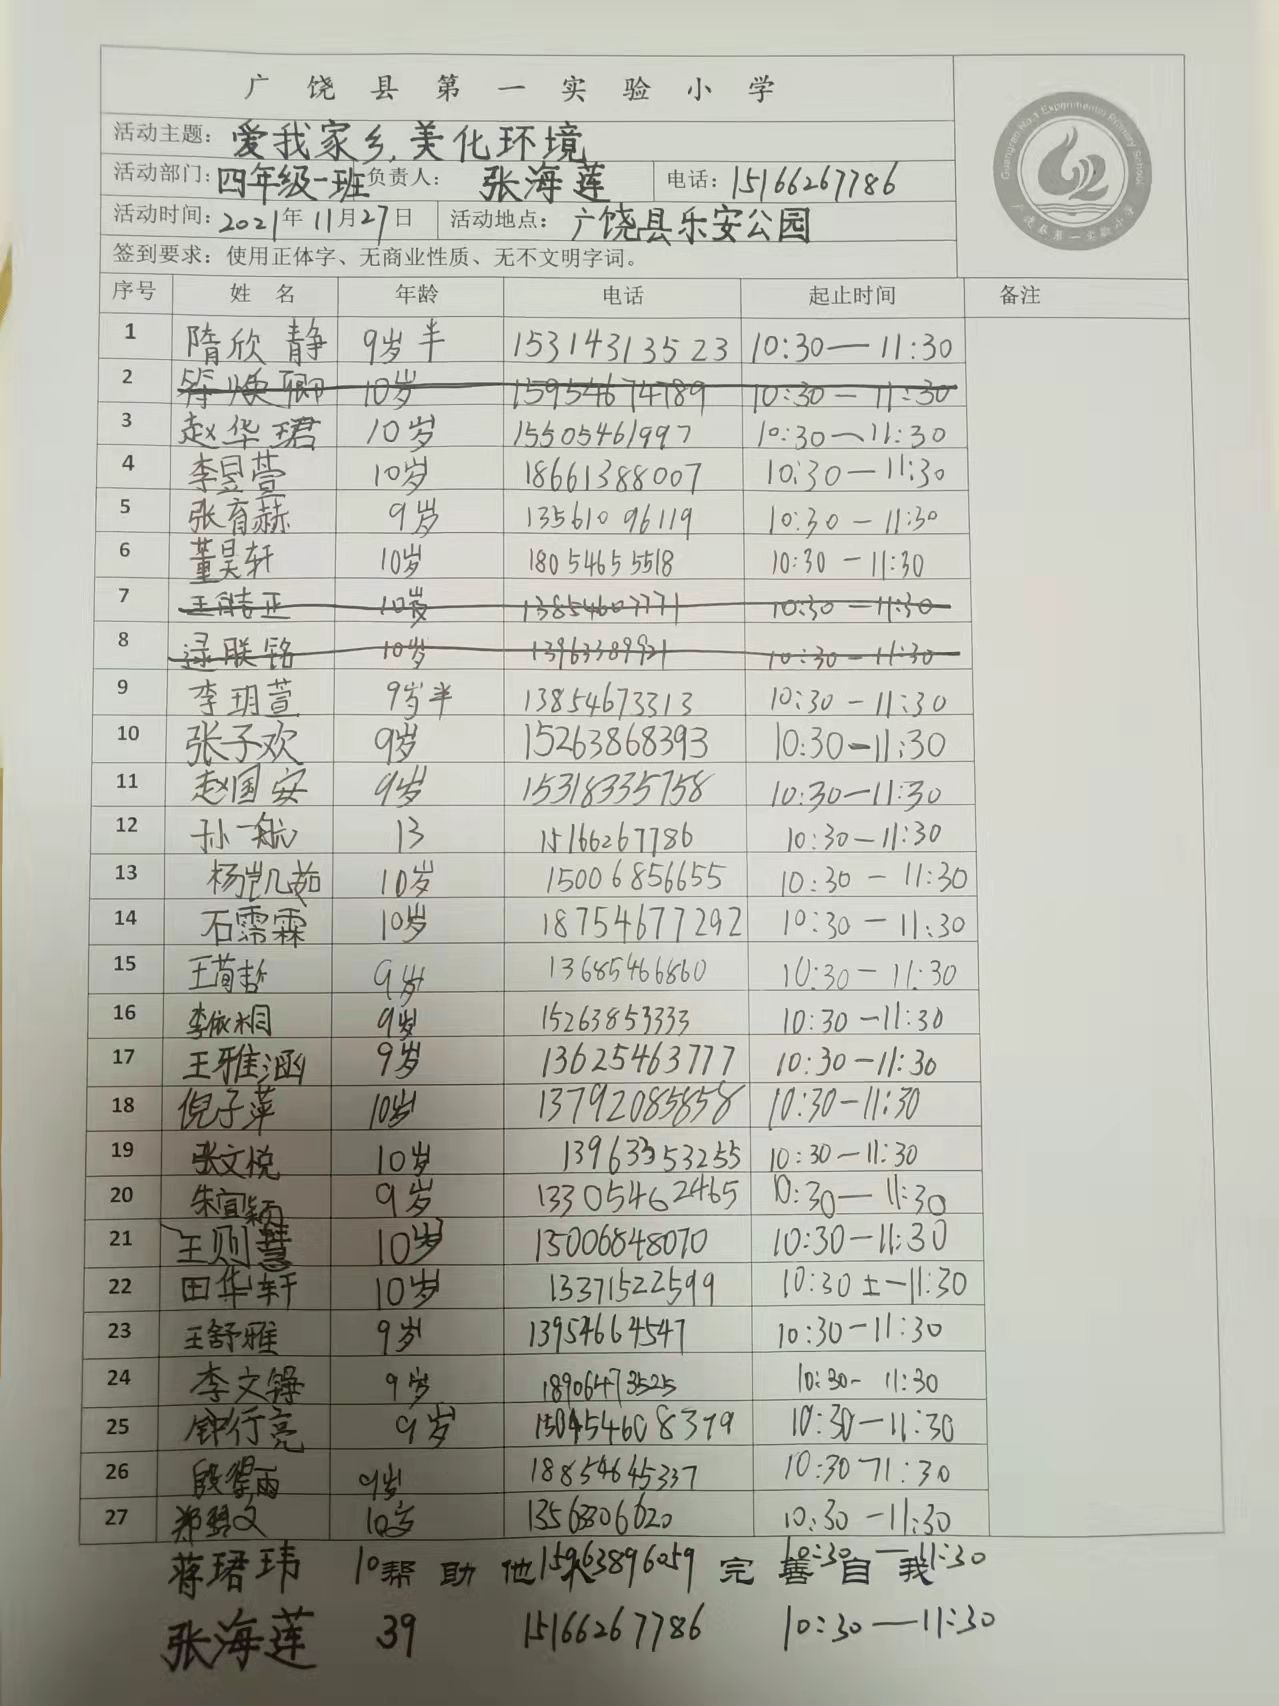 广饶县第一实验小学
Guangrao No.1 Experimental Primary School
广饶县第一实验小学
活动主题：爱我家乡,美化环境
活动部门：四年级一班 负责人：张海莲 电话：15166267786
活动时间：2021年11月27日 活动地点：广饶县乐安公园
签到要求：使用正体字、无商业性质、无不文明字词。
序号 姓名 年龄 电话 起止时间 备注
1 隋欣静 9岁半 15314313523 10:30—11:30
2 10岁 15954674789 10:30—11:30
3 赵华珺 10岁 15505461997 10:30—11:30
4 李昱萱 10岁 18661388007 10:30—11:30
5 张育赫 9岁 13561096119 10:30—11:30
6 董昊轩 10岁 18054655518 10:30—11:30
7 10岁 13854607771 10:30—11:30
8 逯联铭 10岁 13963389921 10:30—11:30
9 李玥萱 9岁半 13854673313 10:30—11:30
10 张子欢 9岁 15263868393 10:30—11:30
11 赵国安 9岁 15318335758 10:30—11:30
12 孙一航 13 15166267786 10:30—11:30
13 杨岂凡茹 10岁 15006856655 10:30—11:30
14 石霈霖 10岁 18754677292 10:30—11:30
15 9岁 13685466860 10:30—11:30
16 李依桐 9岁 15263853333 10:30—11:30
17 王雅涵 9岁 13625463777 10:30—11:30
18 倪子萍 10岁 13792085858 10:30—11:30
19 张文悦 10岁 13963353255 10:30—11:30
20 朱宣颖 9岁 13305462465 10:30—11:30
21 王则慧 10岁 15006848070 10:30—11:30
22 田华轩 10岁 13371522599 10:30—11:30
23 王舒雅 9岁 13954664547 10:30—11:30
24 李文锋 9岁 18906473525 10:30-11:30
25 钟行亮 9岁 10:30—11:30
26 9岁 18854645337 10:30
27 10岁 10:30—11:30
蒋珺玮 10 15963896059 10:30—11:30
帮助他人 完善自我
张海莲 39 15166267786 10:30—11:30